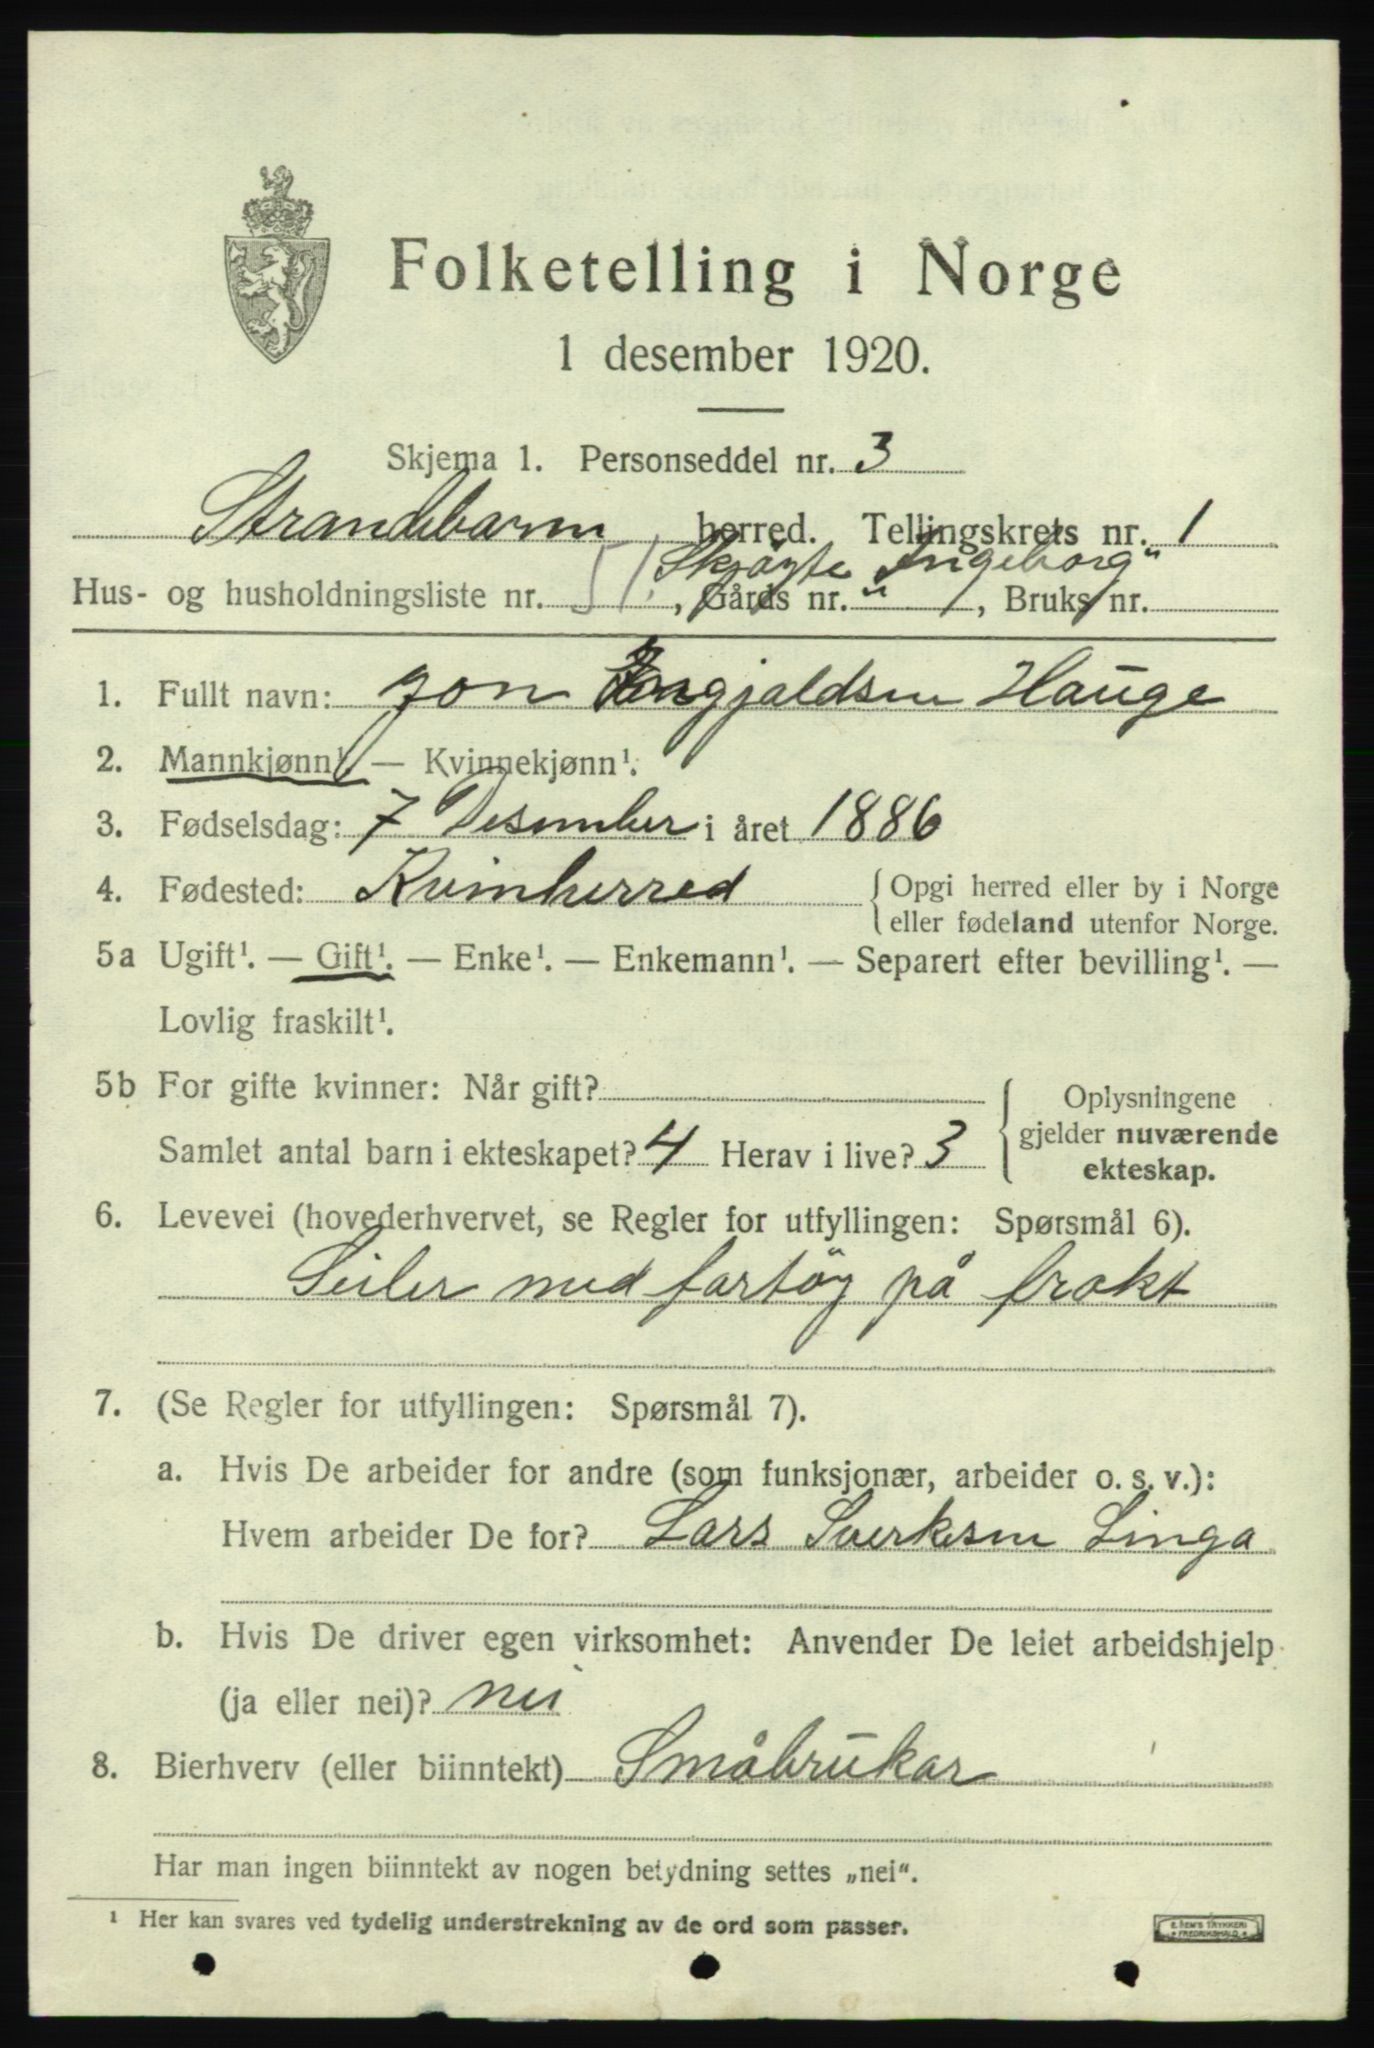 Folketelling i Norge
1 desember 1920.
Skjema 1. Personseddel nr. 3
Strandebarm herred. Tellingskrets nr. 1
Skjøyte "Ingeborg"
Hus- og husholdningsliste nr. 51, Gårds nr. , Bruks nr.
1. Fullt navn: Jon Ingjaldsen Hauge
2. Mannkjønn¹. — Kvinnekjønn¹.
3. Fødselsdag: 7 Desember i året 1886
4. Fødested: Kvinherred {Opgi herred eller by i Norge
eller fødeland utenfor Norge.
5a Ugift¹. — Gift¹. — Enke¹. — Enkemann¹. — Separert efter bevilling¹. —
Lovlig fraskilt¹.
5b For gifte kvinner: Når gift?
Samlet antal barn i ekteskapet? 4 Herav i live? 3
Oplysningene
gjelder nuværende
ekteskap.
6. Levevei (hovederhvervet, se Regler for utfyllingen: Spørsmål 6).
Seiler med fartöy på frakt
7. (Se Regler for utfyllingen: Spørsmål 7).
a. Hvis De arbeider for andre (som funksjonær, arbeider o. s. v.):
Hvem arbeider De for? Lars Sverkesen Linga
b. Hvis De driver egen virksomhet: Anvender De leiet arbeidshjelp
(ja eller nei)? nei
8. Bierhverv (eller biinntekt) Småbrukar
Har man ingen biinntekt av nogen betydning settes „nei“.
¹ Her kan svares ved tydelig understrekning av de ord som passer.
E. SEM'S TRYKKERI
FREDRIKSHALD